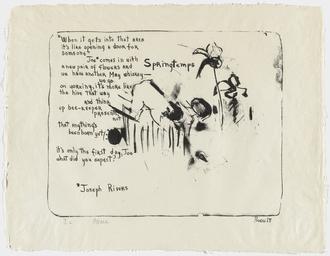 "When it gets into that area
it's like opening a door for
someone"
"Joe" comes in with
a new pair of flowers and
we have another May whiskey
we go
on working, it's more like
the hive that way
and think
up bee-keeper
(present)
not
that anything's
been born yet,
it's only the first day, Joe
what did you expect?
Springtemps
*Joseph Rivers